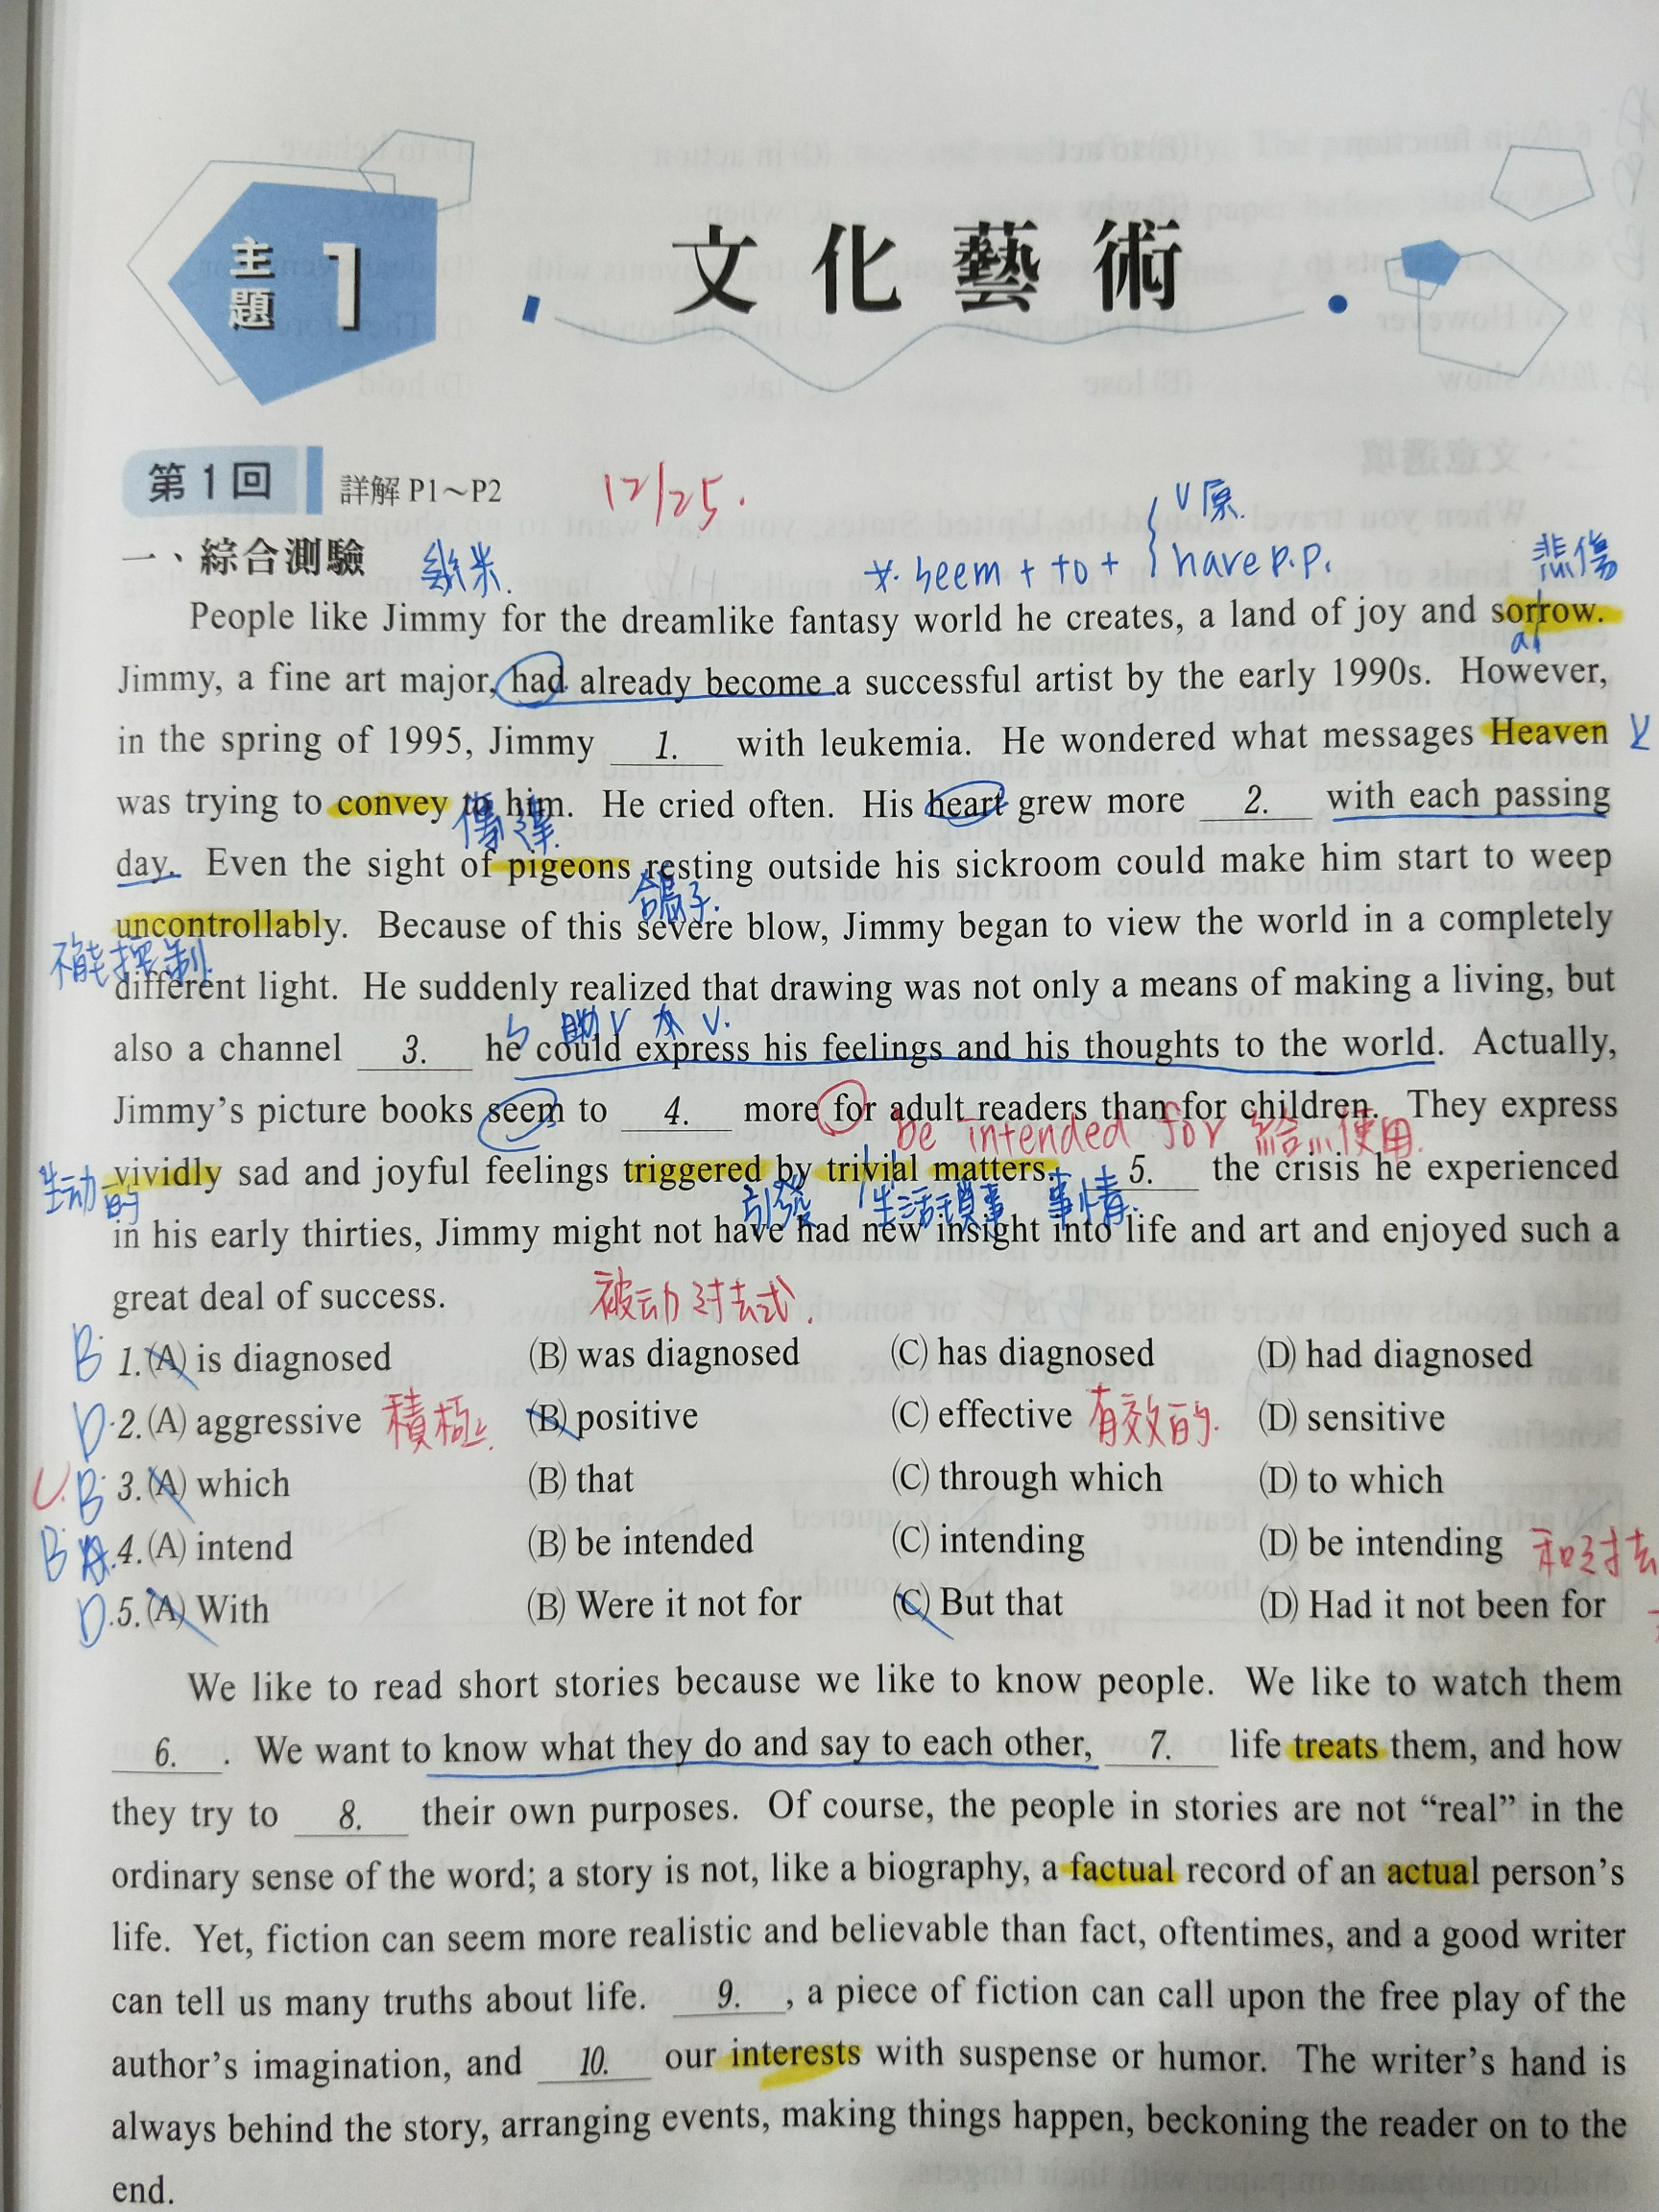 主題 1
文化藝術
第 1 回 詳解 P1～P2 12/25.
V原.
一、綜合測驗 幾米. *. seem + to + have p.p. 悲傷
People like Jimmy for the dreamlike fantasy world he creates, a land of joy and sorrow.
Jimmy, a fine art major, had already become a successful artist by the early 1990s. However,
in the spring of 1995, Jimmy 1. with leukemia. He wondered what messages Heaven
was trying to convey to him. He cried often. His heart grew more 2. with each passing
傳達.
day. Even the sight of pigeons resting outside his sickroom could make him start to weep
鴿子.
uncontrollably. Because of this severe blow, Jimmy began to view the world in a completely
不能控制
different light. He suddenly realized that drawing was not only a means of making a living, but
S 助V 本 V.
also a channel 3. he could express his feelings and his thoughts to the world. Actually,
Jimmy's picture books seem to 4. more for adult readers than for children. They express
be intended for 給...使用.
生动的 vividly sad and joyful feelings triggered by trivial matters. 5. the crisis he experienced
引發 生活瑣事 事情.
in his early thirties, Jimmy might not have had new insight into life and art and enjoyed such a
great deal of success. 被动过去式.
B 1. (A) is diagnosed (B) was diagnosed (C) has diagnosed (D) had diagnosed
D. 2. (A) aggressive 積極 (B) positive (C) effective 有效的. (D) sensitive
B 3. (A) which (B) that (C) through which (D) to which
B A. 4. (A) intend (B) be intended (C) intending (D) be intending 和过去
D. 5. (A) With (B) Were it not for (C) But that (D) Had it not been for
We like to read short stories because we like to know people. We like to watch them
6. . We want to know what they do and say to each other, 7. life treats them, and how
they try to 8. their own purposes. Of course, the people in stories are not “real” in the
ordinary sense of the word; a story is not, like a biography, a factual record of an actual person's
life. Yet, fiction can seem more realistic and believable than fact, oftentimes, and a good writer
can tell us many truths about life. 9. , a piece of fiction can call upon the free play of the
author's imagination, and 10. our interests with suspense or humor. The writer's hand is
always behind the story, arranging events, making things happen, beckoning the reader on to the
end.